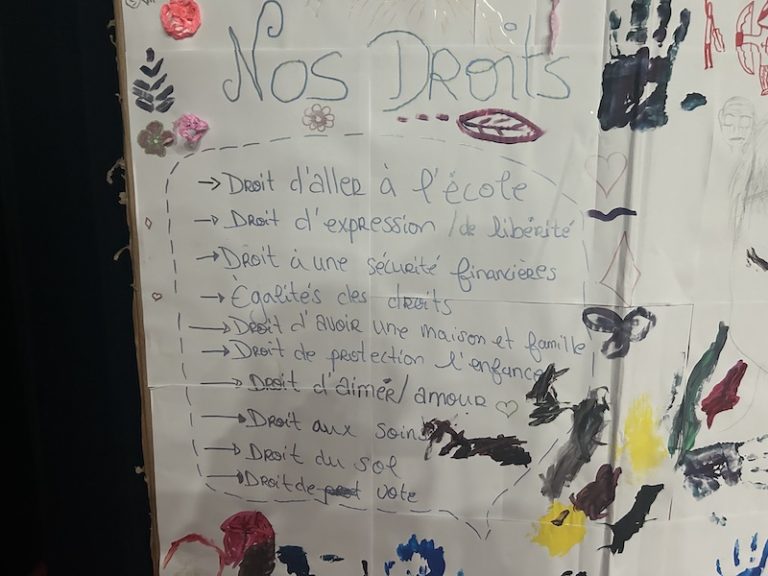 Nos Droits
→ Droit d'aller à l'école
→ Droit d'expression / de libérité
→ Droit à une sécurité financières
→ Égalités des droits
→ Droit d'avoir une maison et famille
→ Droit de protection l'enfance
→ Droit d'aimér / amour ♡
→ Droit aux soins
→ Droit du sol
→ Droit de vote